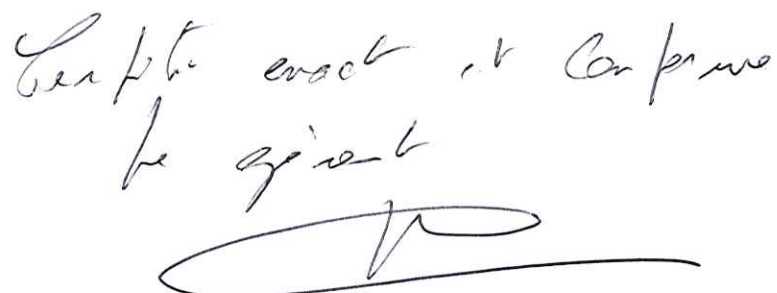 Certifié exact et conforme
Le gérant